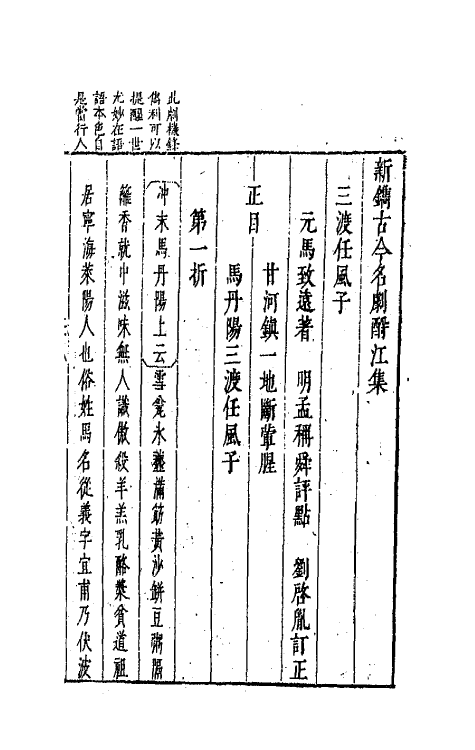 新鐫古今名劇酹江集
三渡任風子
元馬致遠著　明孟稱舜評點　劉啓胤訂正
正目
甘河鎮一地斷葷腥
馬丹陽三渡任風子
第一折
冲末馬丹陽上云雪甕氷虀滿筯黃沙餅豆粥隔
籬香就中滋味無人識傲殺羊羔乳酪漿貧道祖
居寧海萊陽人也俗姓馬名從義字宜甫乃伏波
此劇機鋒
儁利可以
提醒一世
尤妙在語
語本色自
是當行人